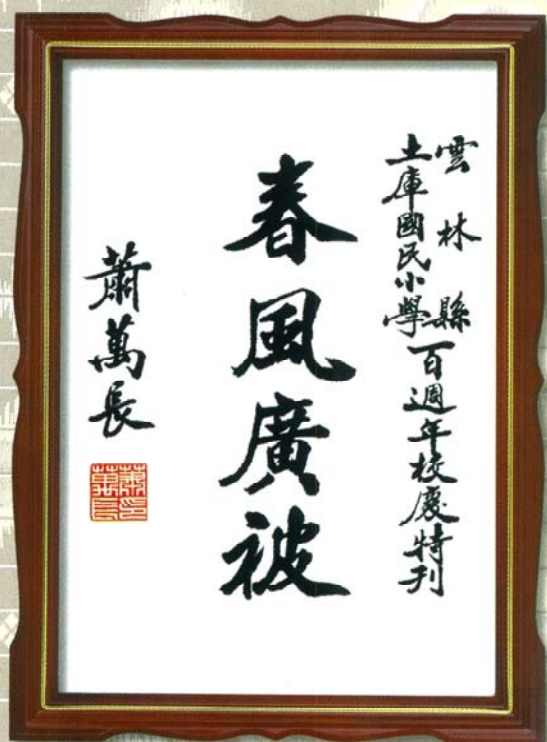 雲林縣
土庫國民小學
百週年校慶特刊
春風廣被
蕭萬長
蕭萬長印